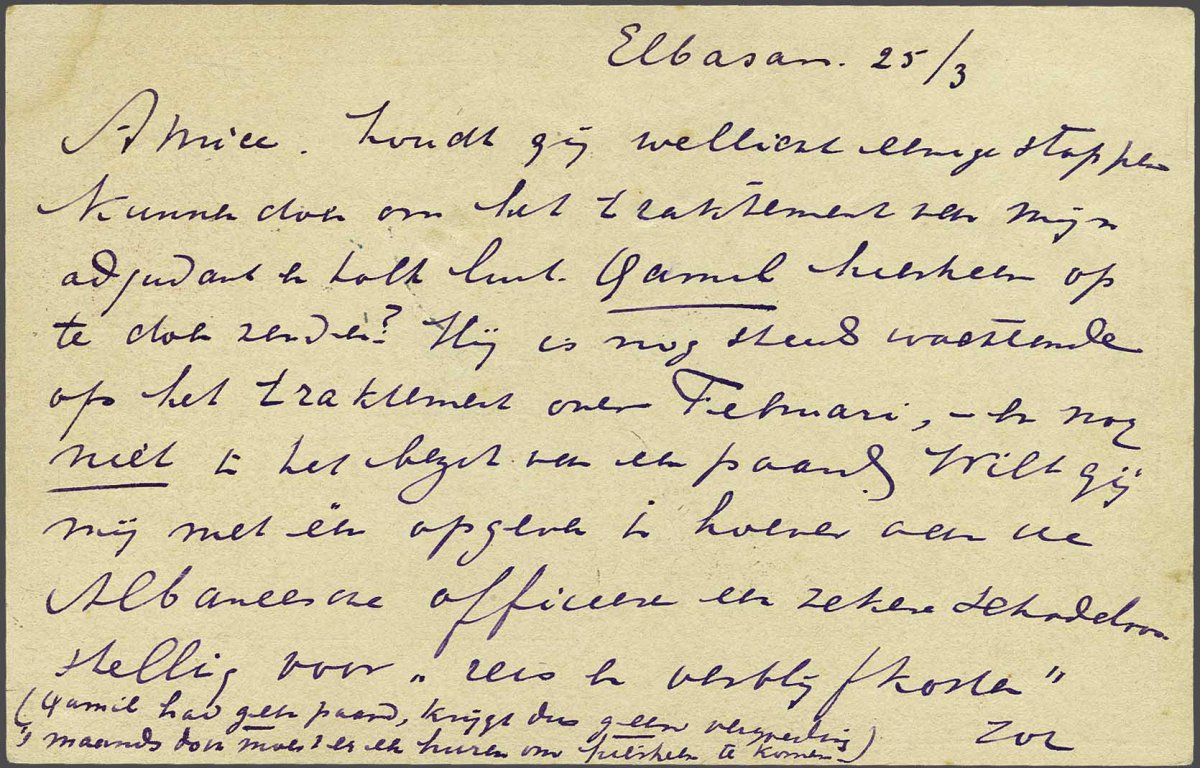 Elbasan. 25/3
Amice. Zoudt gij wellicht eenige stappen
kunnen doen om het traktement van mijn
adjudant en tolk luit. Qamil hierheen op
te doen zenden? Hij is nog steeds wachtende
op het traktement over Februari, – en nog
niet in het bezit van een paard. Wilt gij
mij met één opgeven in hoever aan de
Albaneesche officieren een zekere schadeloos-
stelling voor „reis en verblijfkosten"
(Qamil had geen paard, krijgt dus geen vergoeding)
's maands doch moest er een huren om hierheen te komen